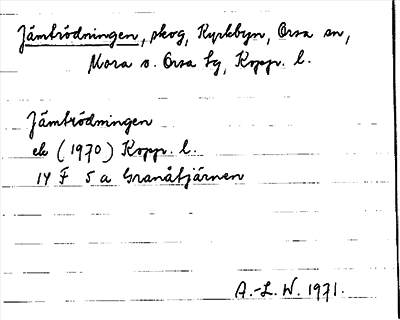 Jämtrödningen, skog, Kyrkbyn, Orsa sn,
Mora o. Orsa tg, Kopp. l.
Jämtrödningen
ek (1970) Kopp. l.
14 F 5 a Granåtjärnen
A.-L. W. 1971.